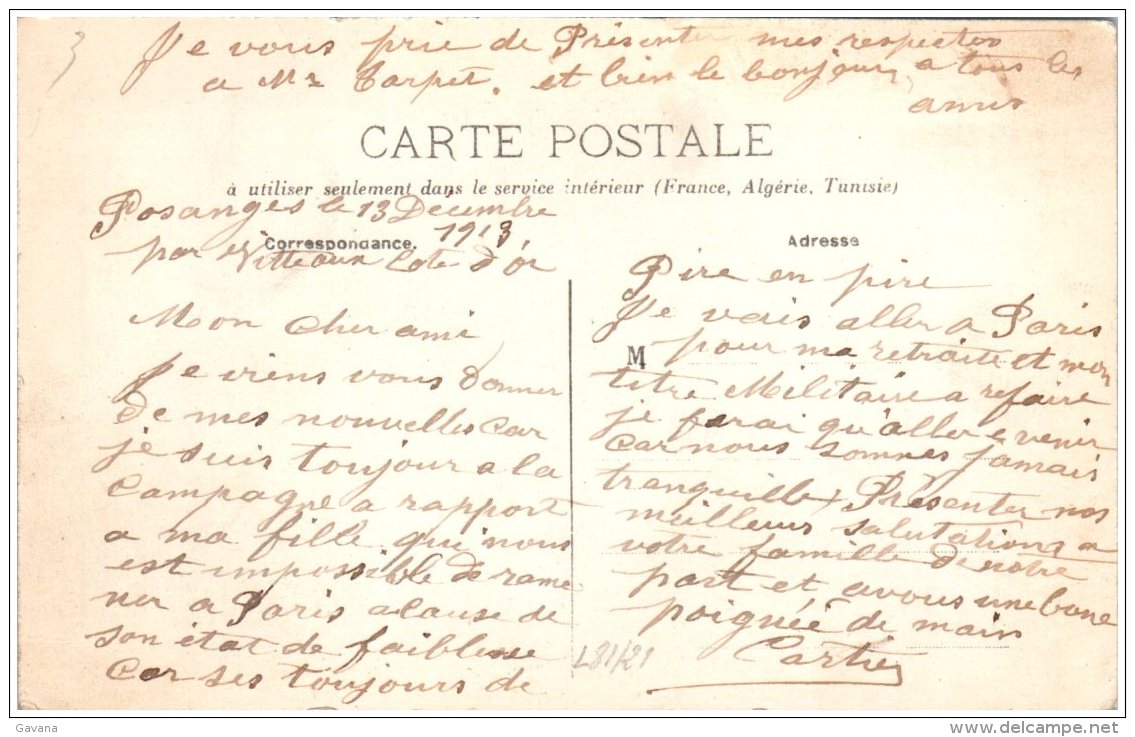 Je vous prie de Présenter mes respectes
a Mr Tarpet. et bien le bonjour a tous les
amis
CARTE POSTALE
à utiliser seulement dans le service intérieur (France, Algérie, Tunisie)
Posanges le 13 Decembre
1913
Correspondance.
par Vitteaux Cote d'or
Mon cher ami
Je viens vous Donner
De mes nouvelles car
je suis toujour a la
Campagne a rapport
a ma fille qui nous
est impossible de rame
ner a Paris acause de
son état de faiblesse
Car ses toujours de
Adresse
Pire en pire
Je vais aller a Paris
M
pour ma retraite et mon
titre Militaire a refaire
je ferai qu'aller e venir
Car nous sommes jamais
tranquille. Présenter nos
meilleurs salutations a
votre famille De notre
part et avous une bone
poignée de main
Cartier
L81/21
Gavana
www.delcampe.net